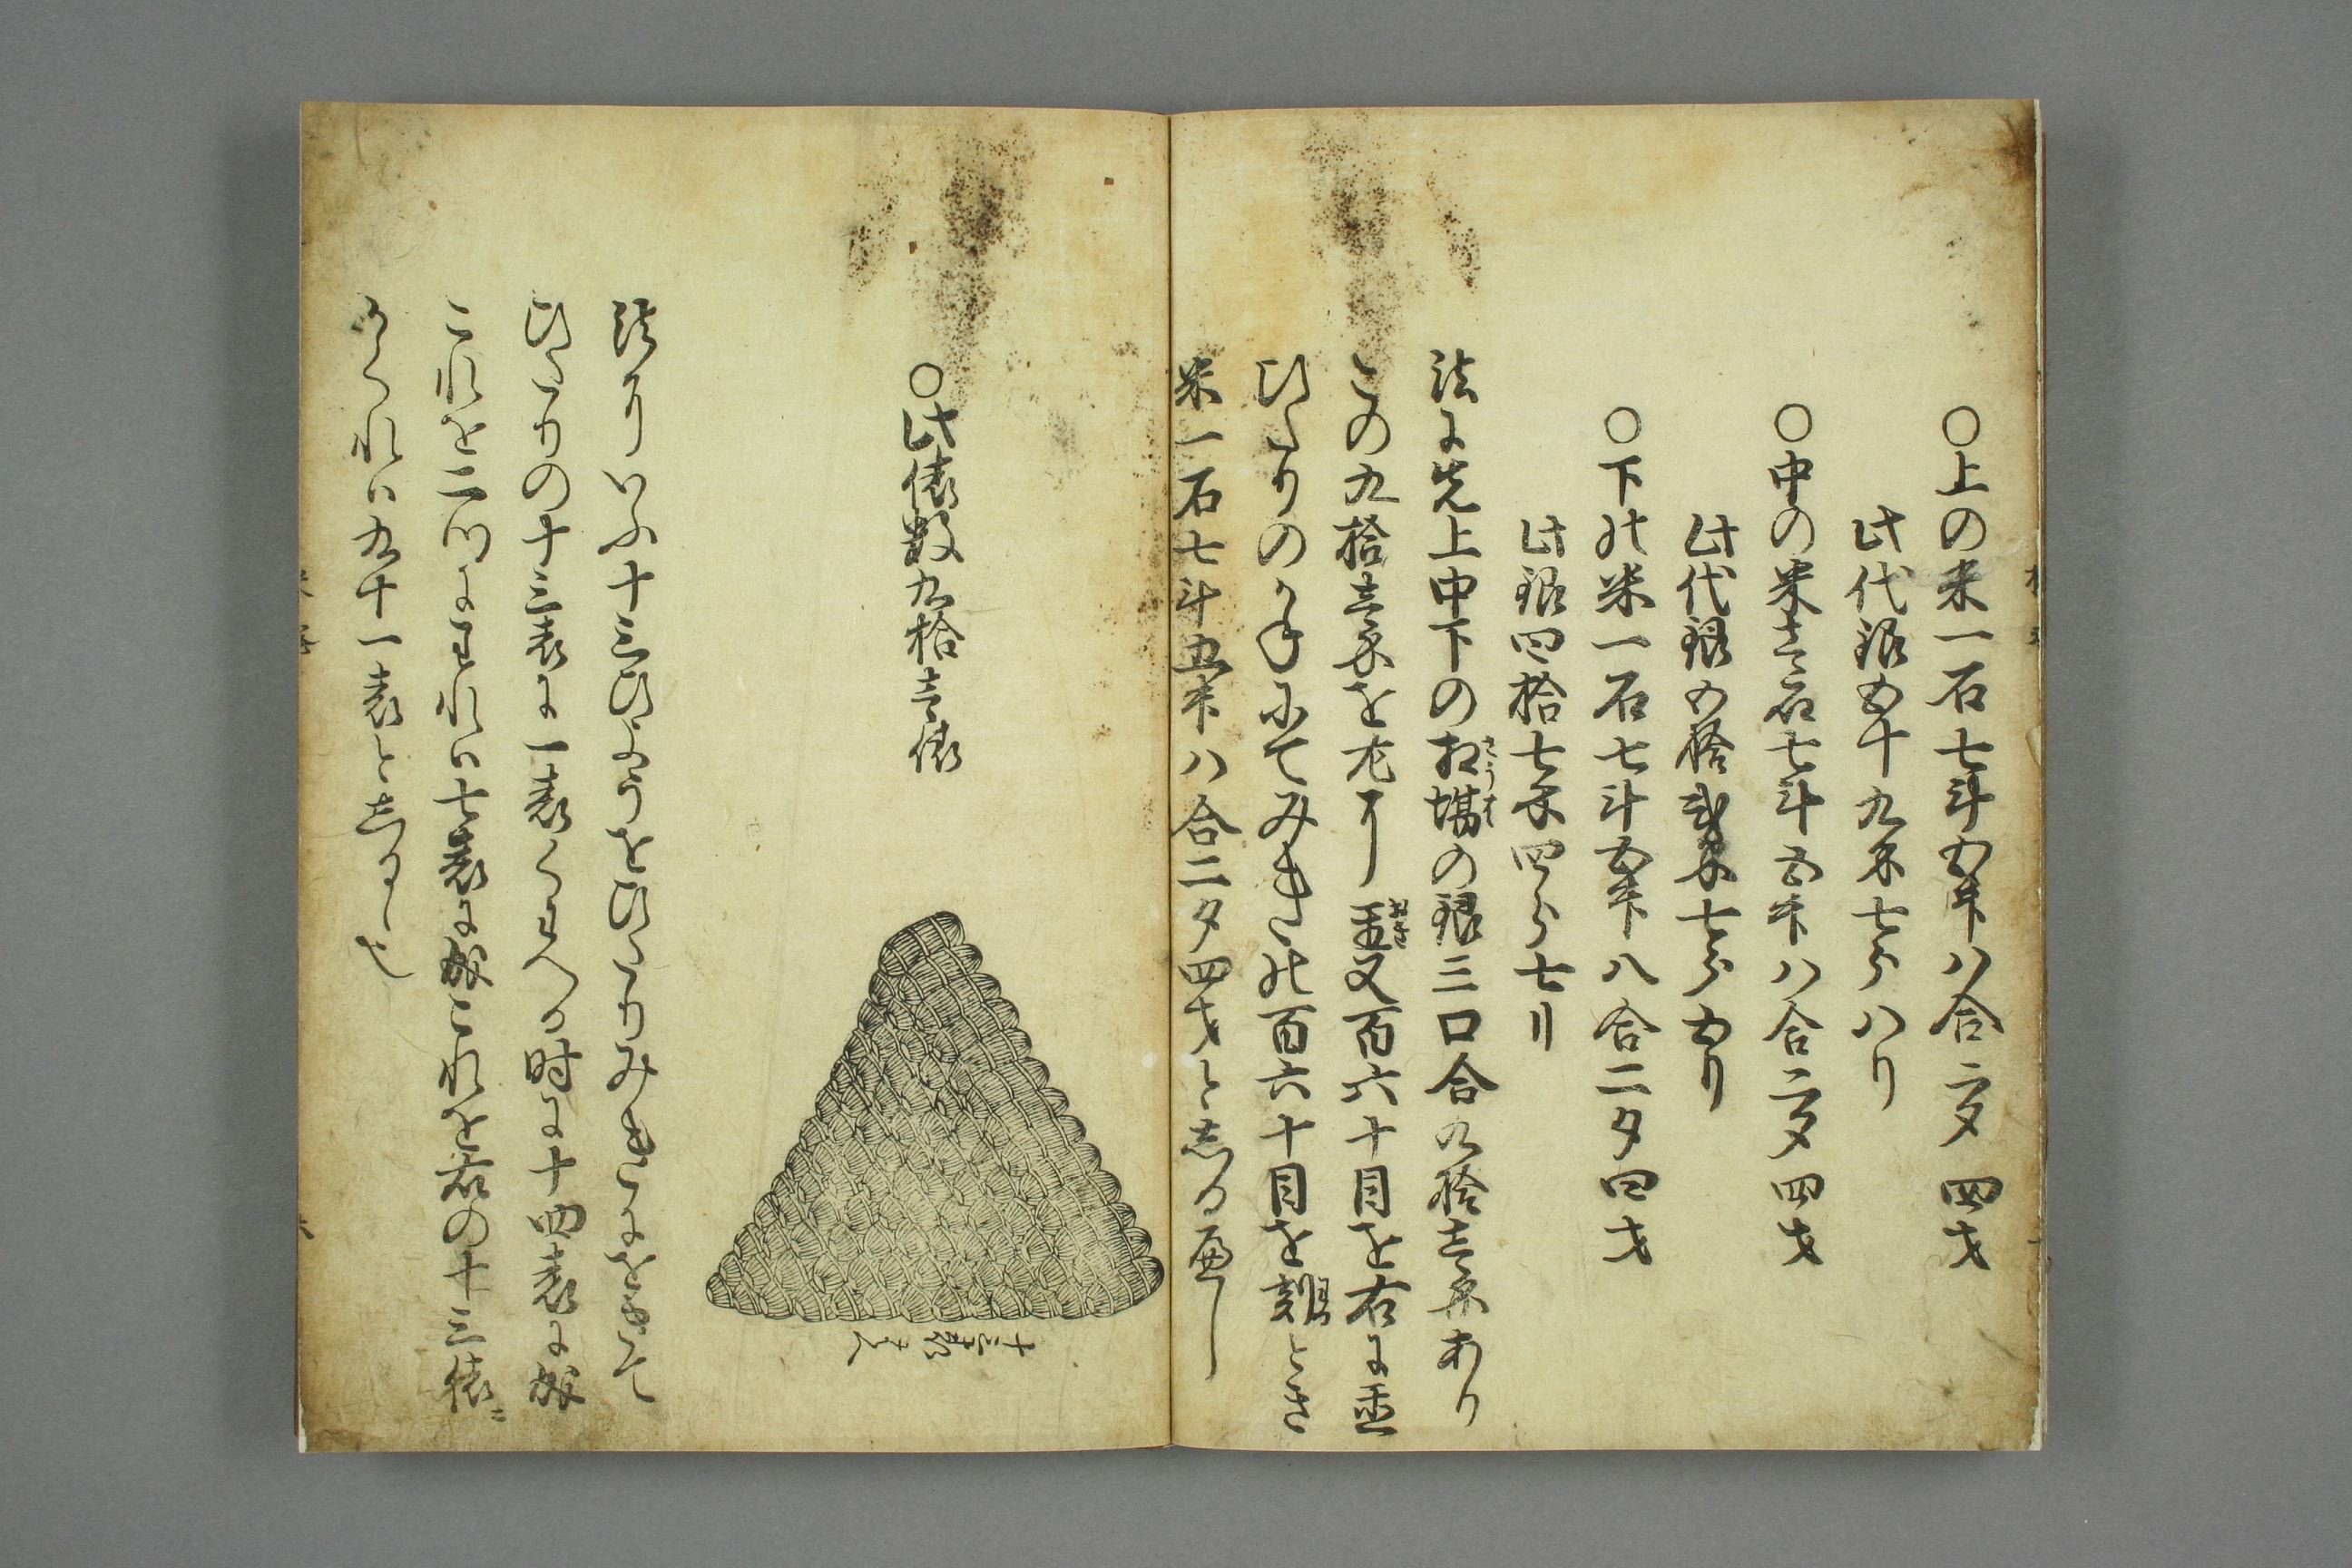 ○上の米一石七斗五升八合二夕四才
此代銀五十九匁七分八り
○中の米壱石七斗五升八合二夕四才
此代銀五拾弐匁七分五り
○下の米一石七斗五升八合二夕四才
此銀四拾七匁四分七り
法に先上中下の相場の銀三口合九拾壱匁あり
さうば
この九拾壱匁を左に置又百六十目を右に置
ひたりのかねにてみきの百六十目を割とき
米一石七斗五升八合二夕四才としるべし
○此俵数九拾壱俵
十三俵なみ
法にいふ十三ひやうをひたりみきにをきて
ひたりの十三表に一表くわへる時に十四表に成
これを二つにわれは七表に成これを右の十三俵ニ
かくれは九十一表としるゝ也